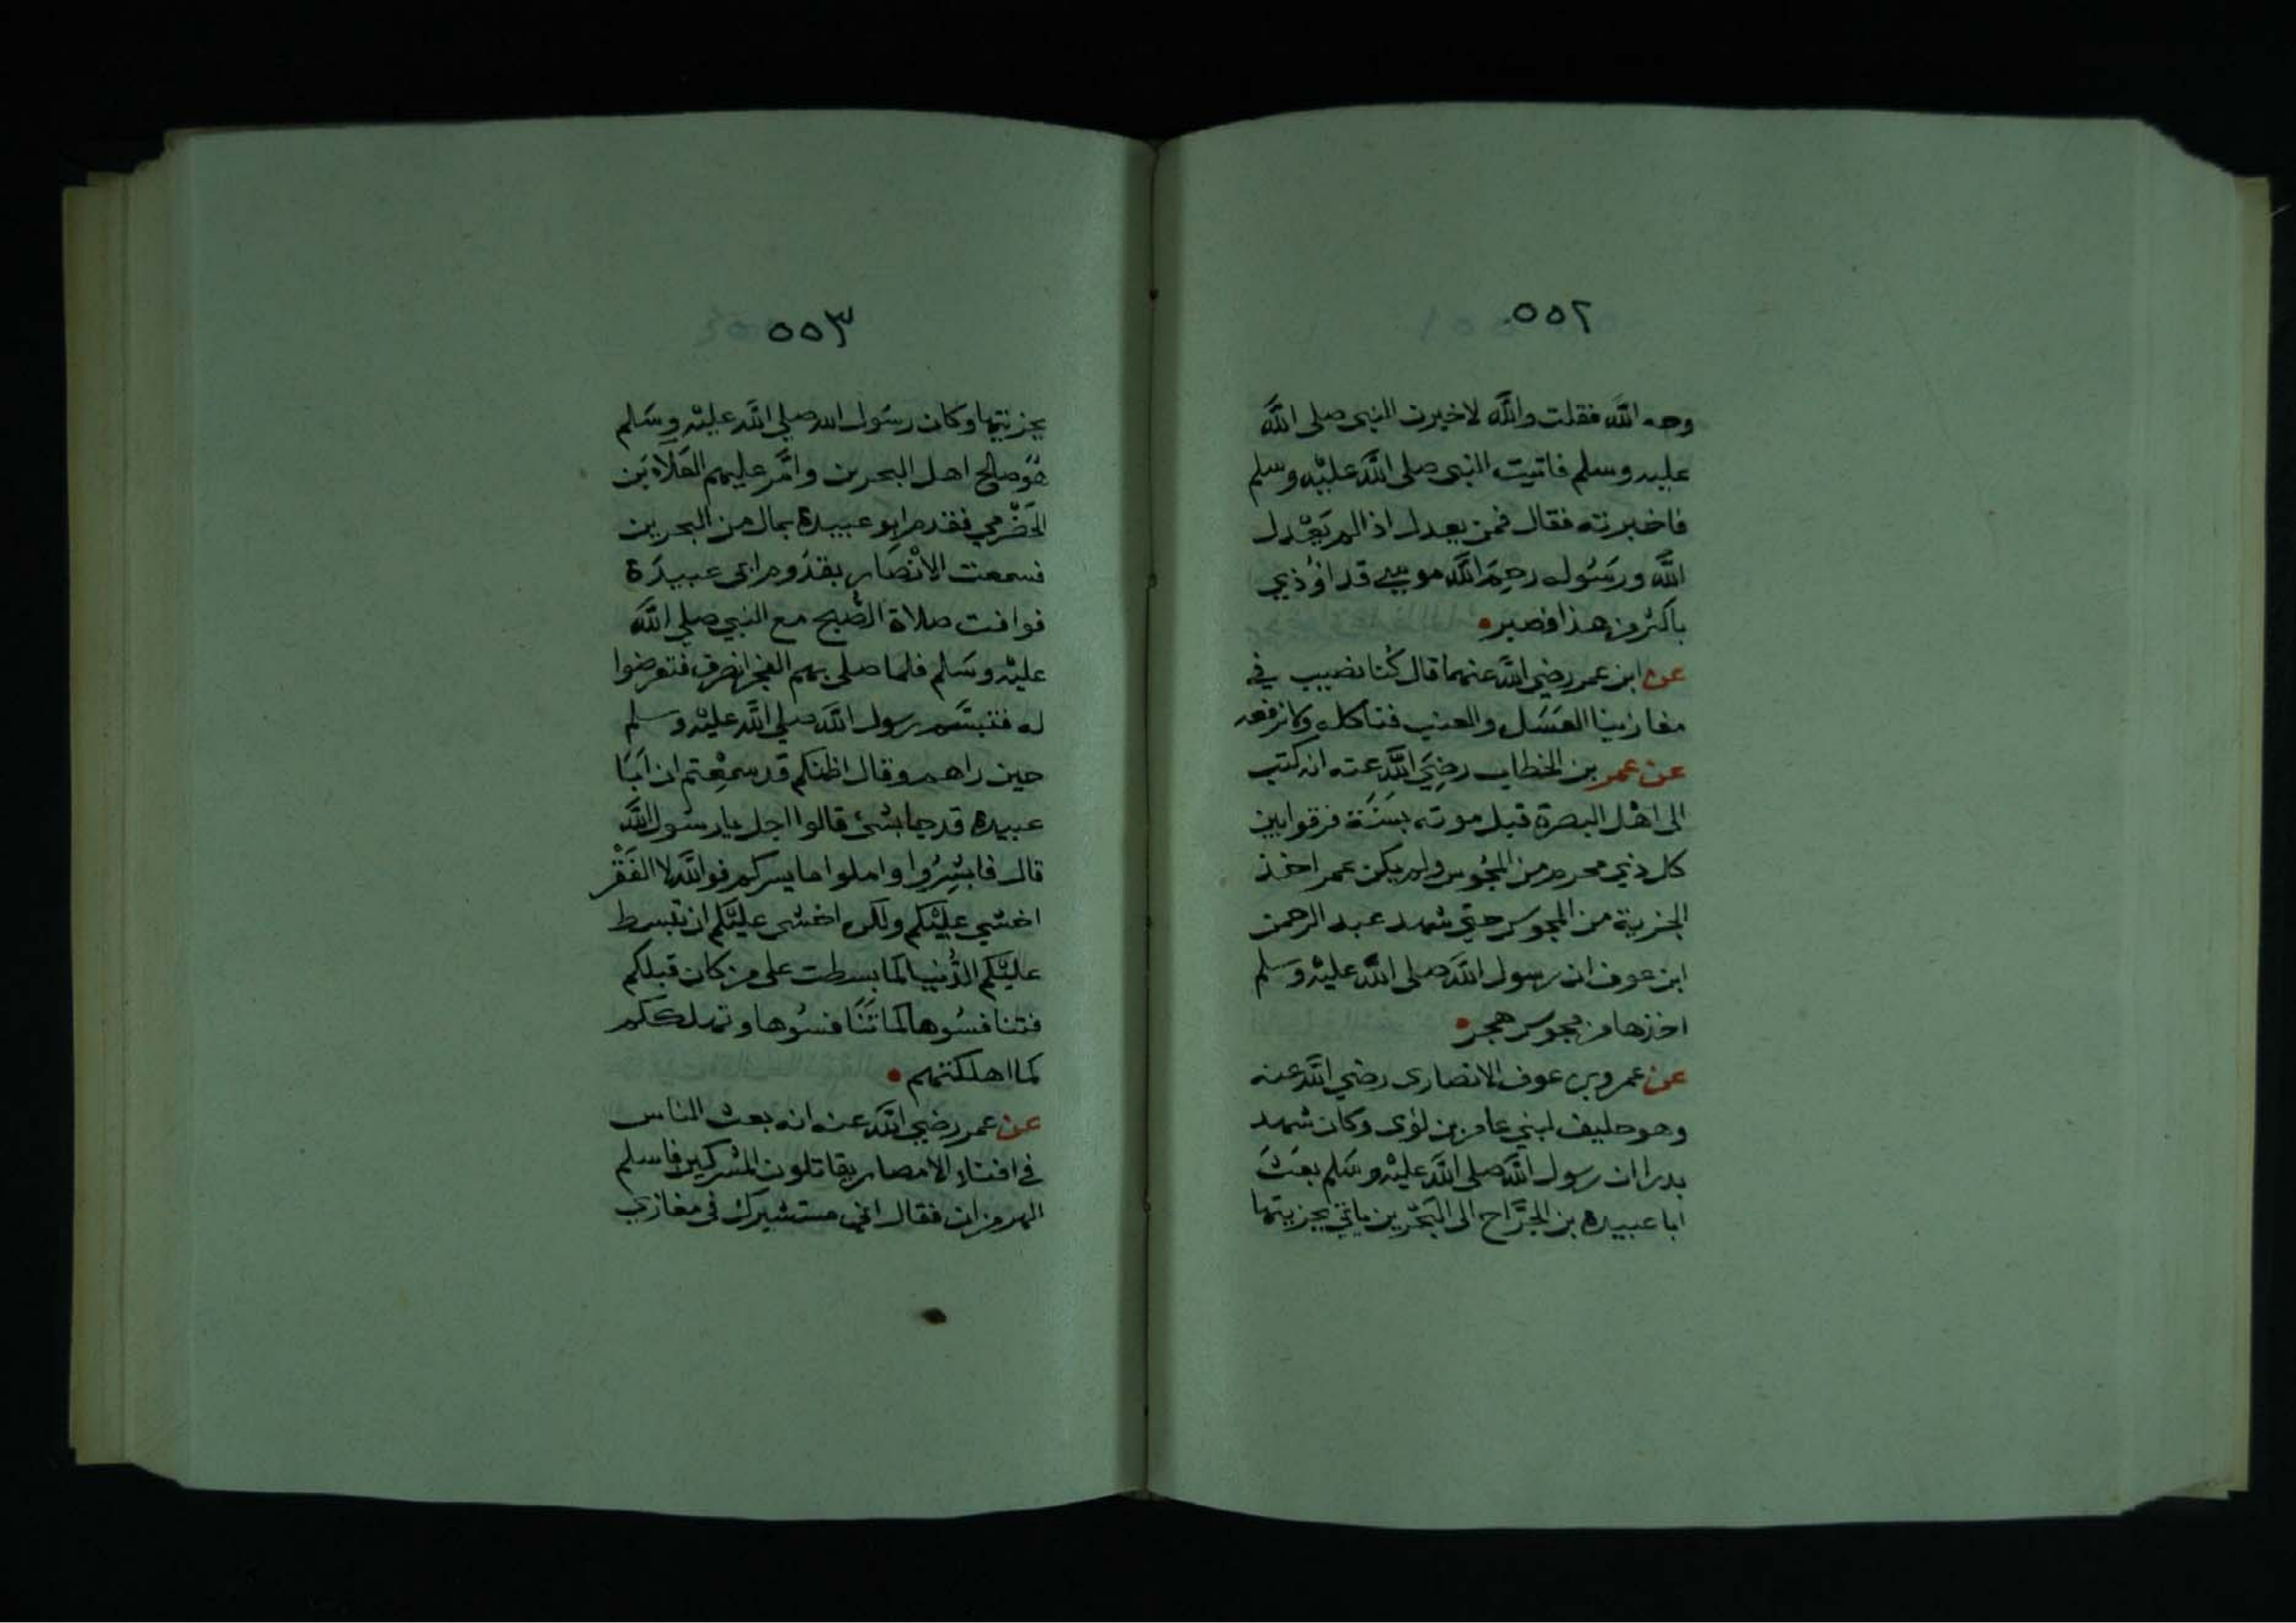 ٥٥٢
وجه الله فقلت والله لاخبرن النبي صلى الله
عليه وسلم فاتيت النبي صلى الله عليه وسلم
فاخبرته فقال فمن يعدل اذا لم يعدل
الله ورسوله رحم الله موسى قد اوذي
باكثر من هذا فصبر
عن ابن عمر رضي الله عنهما قال كنا نصيب في
مغازينا العسل والعنب فناكله ولا نرفعه
عن عمر بن الخطاب رضي الله عنه انه كتب
الى اهل البصرة قبل موته بسنة فرقوا بين
كل ذي محرم من المجوس ولم يكن عمر اخذ
الجزية من المجوس حتى شهد عبد الرحمن
ابن عوف ان رسول الله صلى الله عليه وسلم
اخذها من مجوس هجر
عن عمرو بن عوف الانصاري رضي الله عنه
وهو حليف لبني عامر بن لؤى وكان شهد
بدرا ان رسول الله صلى الله عليه وسلم بعث
ابا عبيدة بن الجراح الى البحرين ياتي بجزيتها
٥٥٣
بجزيتها وكان رسول الله صلى الله عليه وسلم
هو صالح اهل البحرين وامر عليهم العلاء بن
الحضرمي فقدم ابو عبيدة بمال من البحرين
فسمعت الانصار بقدوم ابى عبيدة
فوافت صلاة الصبح مع النبي صلى الله
عليه وسلم فلما صلى بهم الفجر انصرف فتعرضوا
له فتبسم رسول الله صلى الله عليه وسلم
حين راهم وقال اظنكم قد سمعتم ان ابا
عبيدة قد جا بشئ قالوا اجل يا رسول الله
قال فابشروا واملوا ما يسركم فوالله لا الفقر
اخشي عليكم ولكن اخشى عليكم ان تبسط
عليكم الدنيا كما بسطت على من كان قبلكم
فتنافسوها كما تنافسوها وتهلككم
كما اهلكتهم
عن عمر رضي الله عنه انه بعث الناس
في افناء الامصار يقاتلون المشركين فاسلم
الهرمزان فقال اني مستشيرك في مغازي